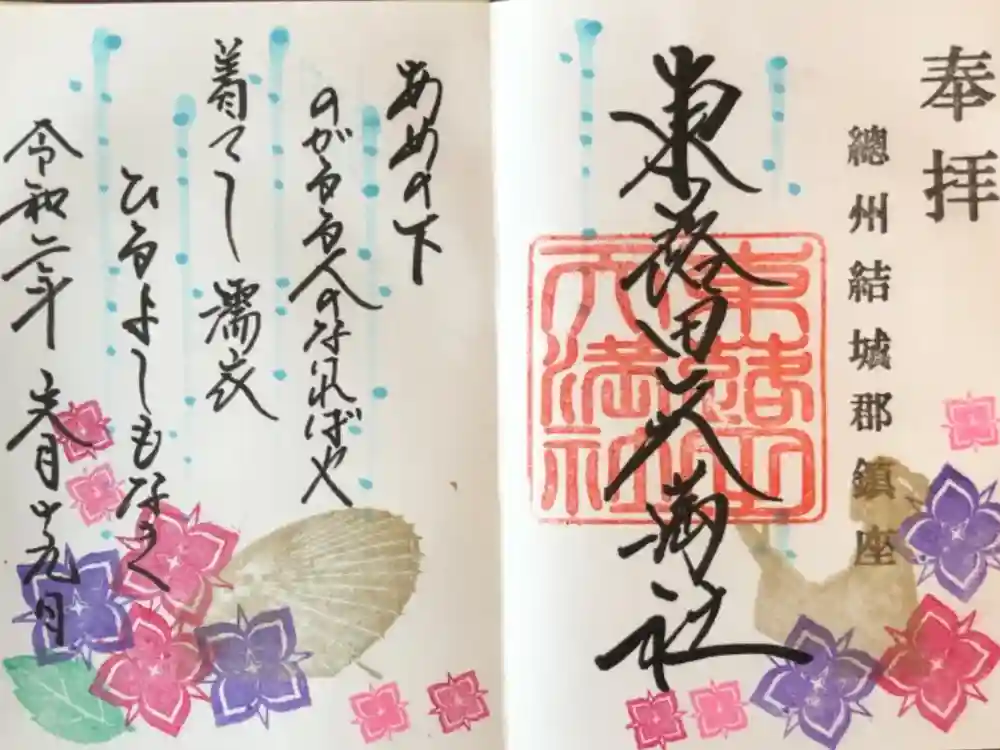 奉拝
總州結城郡鎮座
東蕗田天満社
東蕗田
天満社
あめの下
のがるる人のなければや
着てし濡衣
ひるよしもなき
令和二年 六月十九日